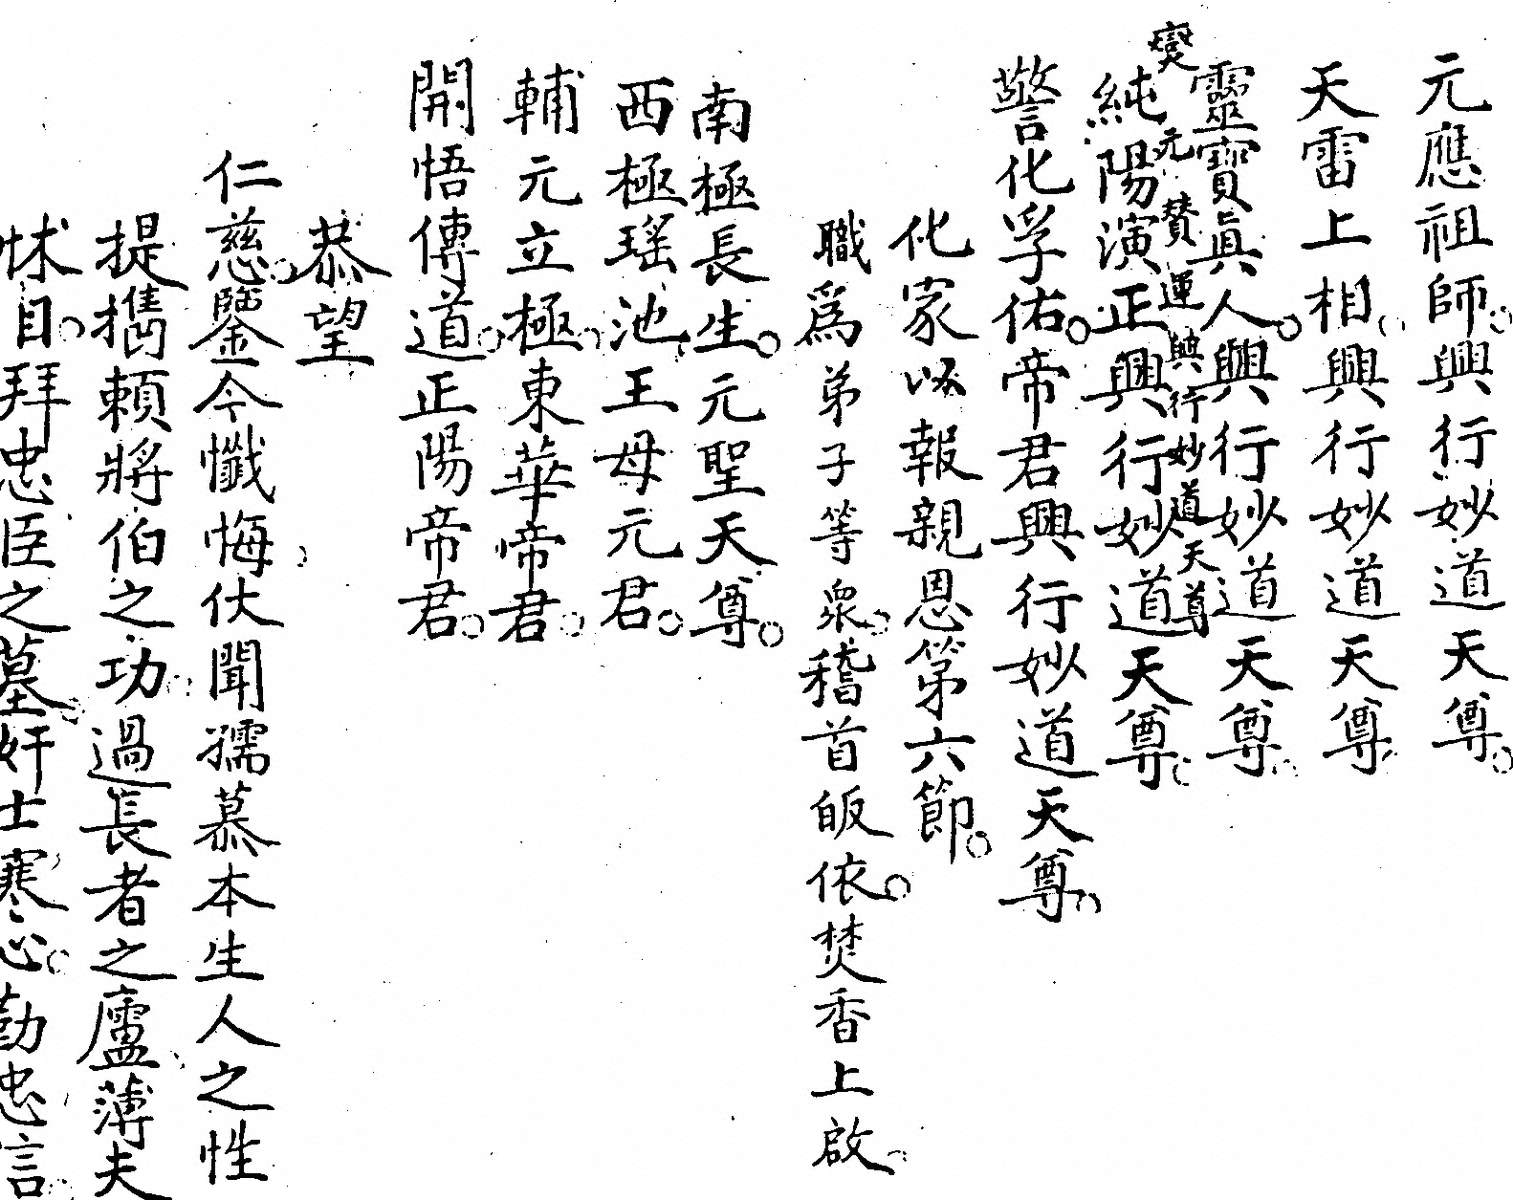 元應祖師。興行妙道天尊。
天雷上相。興行妙道天尊。
靈寶眞人。興行妙道天尊。
燮元贊運興行妙道天尊
純陽演正興行妙道天尊。
警化孚佑。帝君興行妙道天尊。
化家以報親恩第六節。
職爲弟子等衆。稽首皈依。焚香上啟。
南極長生。元聖天尊。
西極瑤池。王母元君。
輔元立極。東華帝君。
開悟傳道。正陽帝君。
恭望
仁慈。鑒今懺悔。伏聞孺慕本生人之性
提擕賴將伯之功。過長者之廬。薄夫
怵目。拜忠臣之墓。奸士寒心。勸忠言。